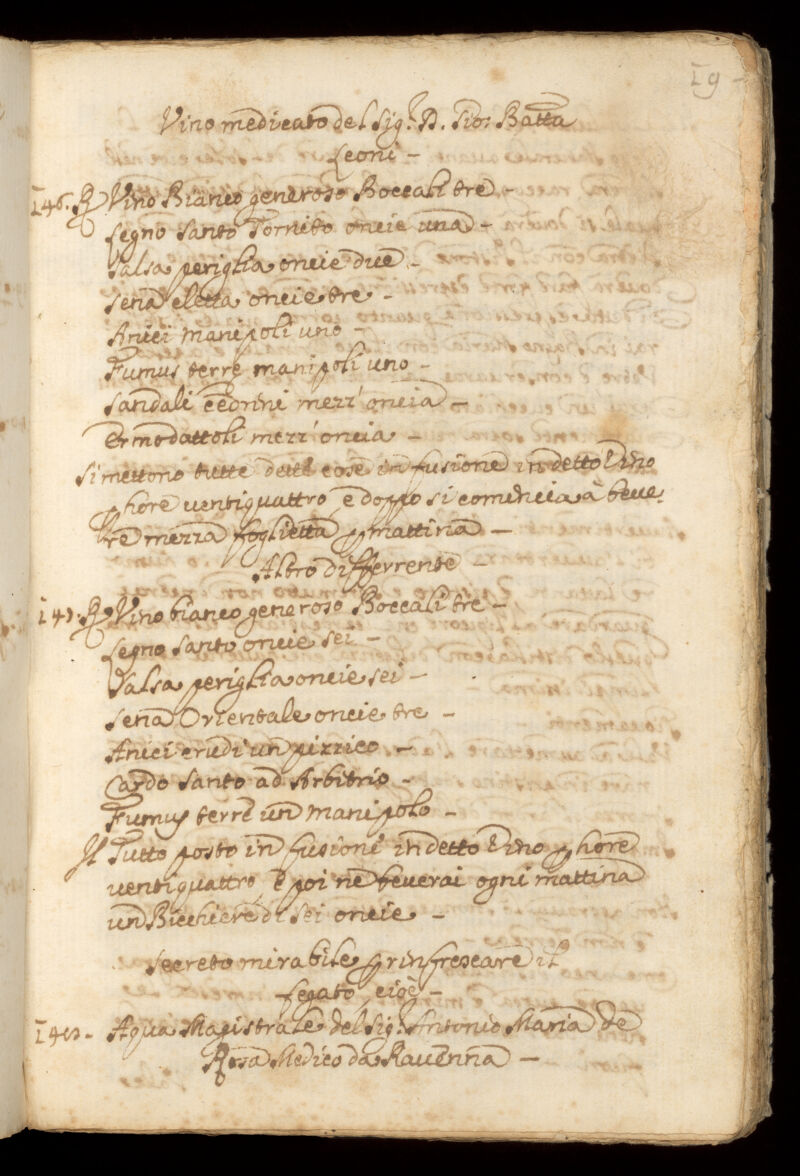 19
Vino medicato del Sig.r D. Gio: Batta
Leoni -
146. ℞ Vino Bianco generoso Boccali tre -
Legno Santo Tornito oncie una -
Salsa periglia oncie due -
Sena eletta oncie tre -
Anici manipoli uno -
Fumus terre manipoli uno -
Sandali cedrini mezz'oncia -
Ermodattoli mezz'oncia -
Si mettono tutte dette cose in fusione in detto Vino
p hore ventiquattro, e doppo si comincia à beve.
re mezza foglietta p mattina -
Altro differrente
147. ℞ Vino bianco generoso Boccali tre -
Legno Santo oncie sei -
Salsa periglia oncie sei -
Sena Orientale oncie tre -
Anici crudi un pizzico -
Cardo Santo ad Arbitrio -
Fumus terre un manipolo -
Il Tutto posto in fusioni in detto Vino p hore
ventiquattro, e poi ne beverai ogni mattina
un Bicchiere di sei oncie -
Secreto mirabile p rinfrescare il
fegato, cioè -
148. Aqua Magistrale del Sig.r Antonio Maria de
Medico da Ravenna -